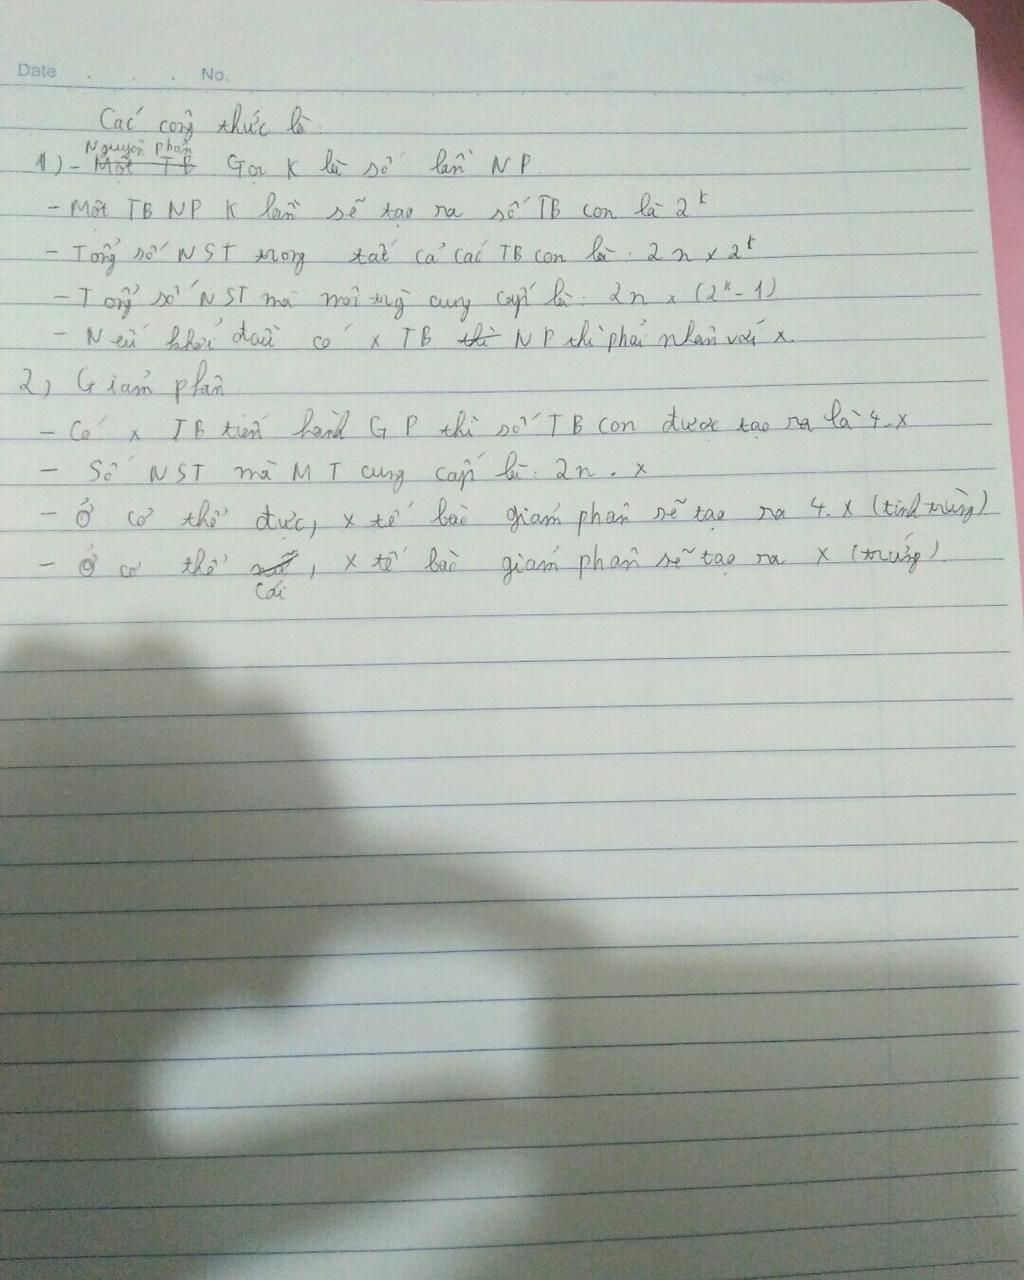 Date . . . No.
Các công thức là:
Nguyên phân
1) - Một TB Gọi K là số lần NP
- Một TB NP K lần sẽ tạo ra số TB con là 2^k
- Tổng số NST trong tất cả các TB con là: 2n x 2^k
- Tổng số NST mà môi trg cung cấp là: 2n x (2^k - 1)
- Nếu khởi đầu có x TB thì NP thì phải nhân với x.
2) Giảm phân
- Có x TB tiến hành GP thì số TB con được tạo ra là 4.x
- Số NST mà MT cung cấp là: 2n . x
- Ở cơ thể đực, x tế bào giảm phân sẽ tạo ra 4.x (tinh trùng)
- Ở cơ thể , x tế bào giảm phân sẽ tạo ra x (trứng)
cái